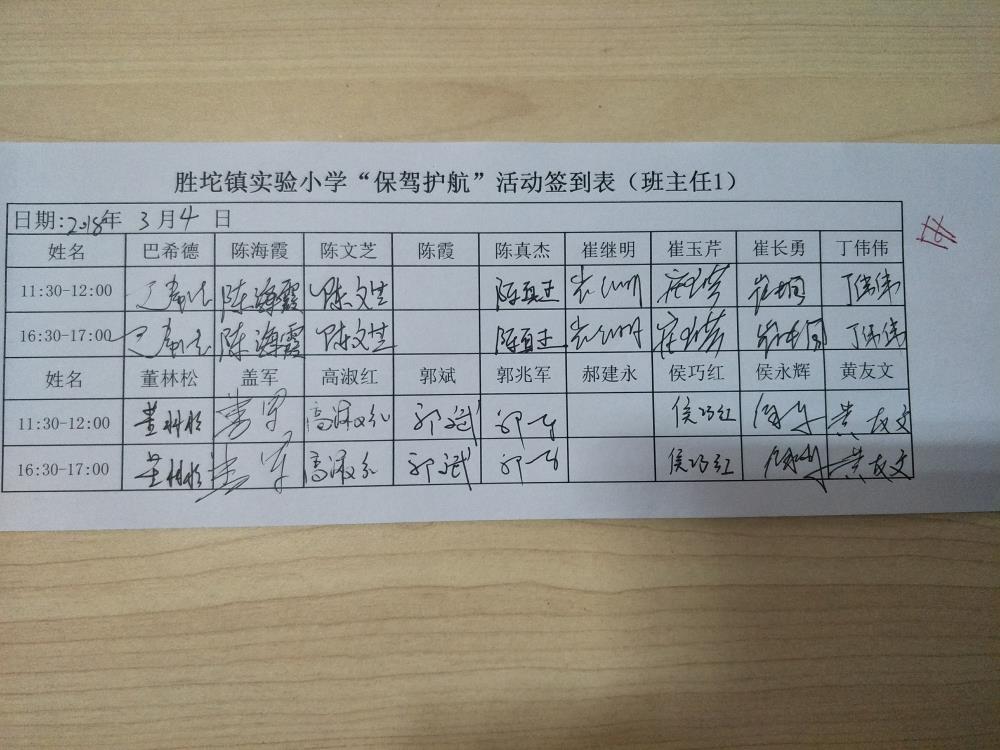 胜坨镇实验小学“保驾护航”活动签到表（班主任1）
日期:2018年 3月4 日
姓名 巴希德 陈海霞 陈文芝 陈霞 陈真杰 崔继明 崔玉芹 崔长勇 丁伟伟
11:30-12:00 陈海霞 陈文芝 丁伟伟
16:30-17:00 陈海霞 陈文芝 丁伟伟
姓名 董林松 盖军 高淑红 郭斌 郭兆军 郝建永 侯巧红 侯永辉 黄友文
11:30-12:00 董林松 盖军 高淑红 郭斌 侯巧红 黄友文
16:30-17:00 董林松 盖军 高淑红 郭斌 侯巧红 黄友文